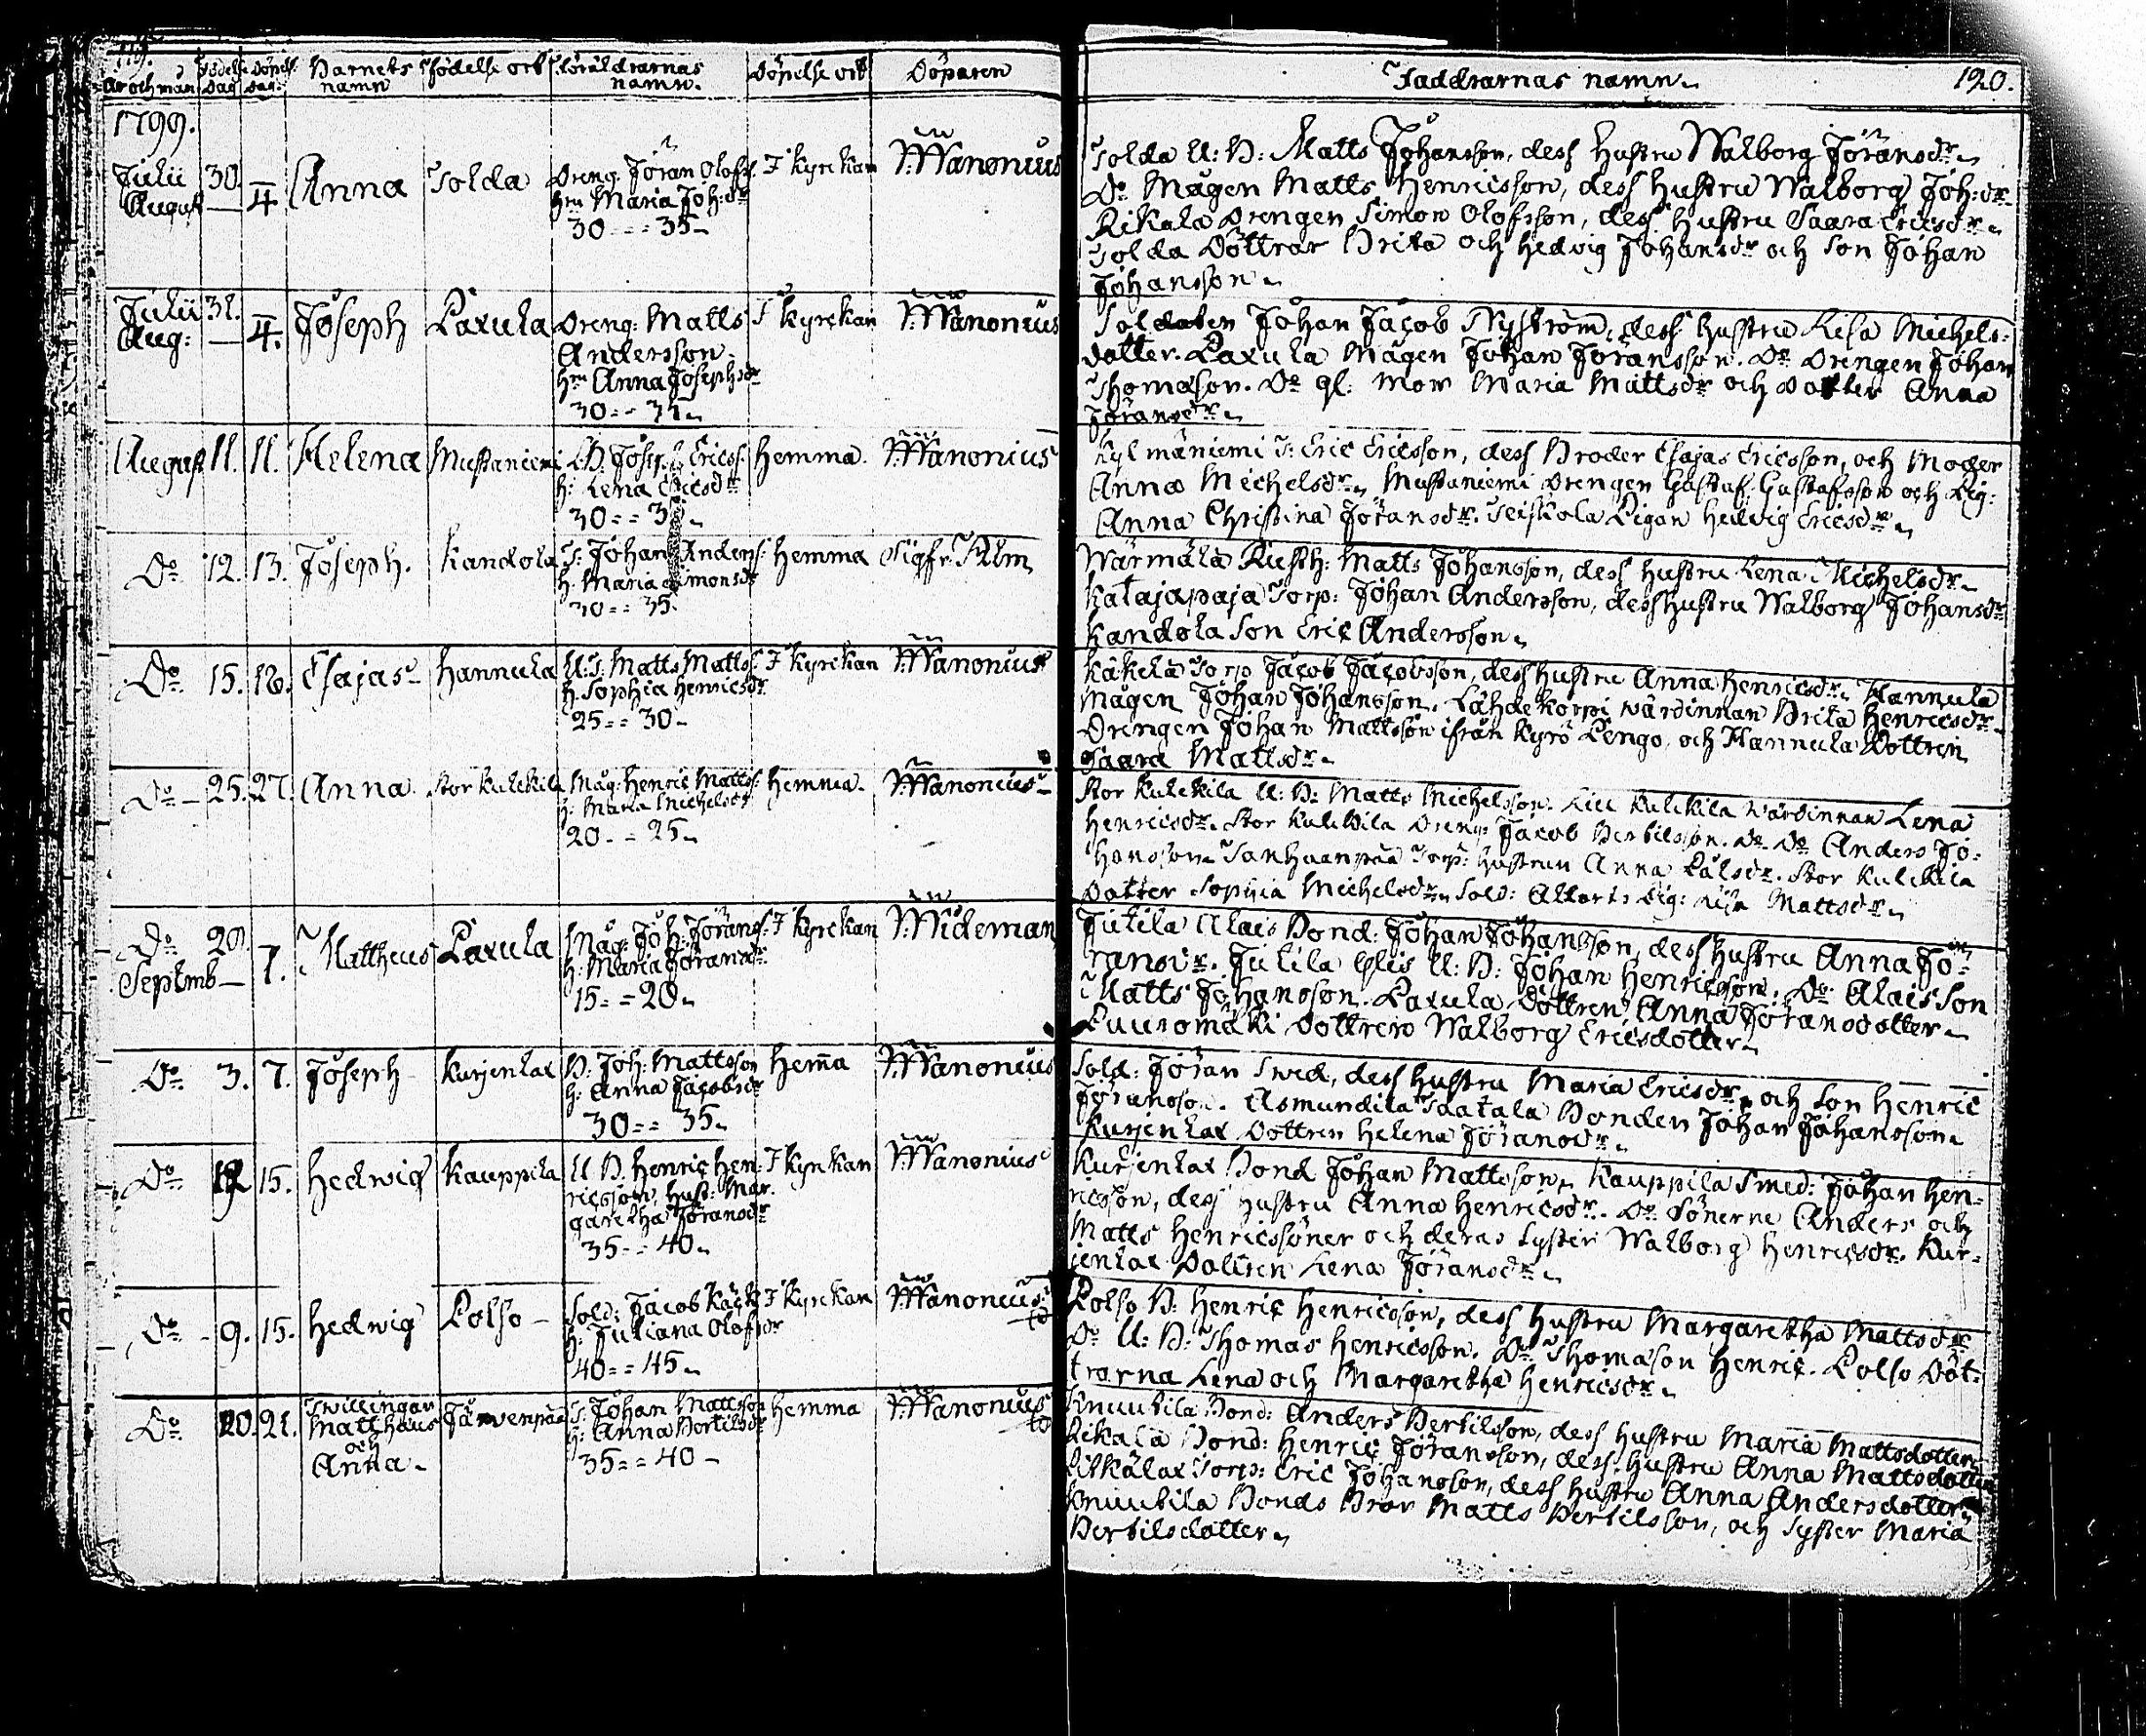 119.
År och mån
Födelse dag
Döpels: dag.
Barnets namn
Födelse ort
Föräldrarnas namn.
Döpelse ort
Döparen
1799.
Julii 30. Anna Tolda Dreng: Jöran Olofs: I kyrckan V: Wanonius
August — 4. hru Maria Joh:dr
30 - - 35
Julii 31. Joseph Laxula Dreng: Matts I kyrckan V: Wanonius
Aug: — 4. Andersson
hru Anna Josephsdr
30 - -
August 11. 11. Helena Mustaniemi B. Joseph Ericss: Hemma. V: Wanonius
h: Lena Ericsdr
30 - -
Do 12. 13. Joseph. Kandola T: Johan Anders: Hemma Sigfr: Alm
h. Maria Simonsdr
30 - - 35.
Do 15. 18. Esajas Hannula U: T. Matts Matts: I kyrckan V: Wanonius
h. Sophia Henricsdr
25 - - 30 -
Do 25. 27. Anna. Stor kulckila Måg: Henric Matts: Hemma. V: Wanonius
h: Maria Michelsdr
20 - - 25
Do 29. Mattheus Laxula Måg: Joh: Jörans: I kyrckan V: Wideman
Septemb — 1. h: Maria Joransdr
15 - - 20
Do 3. 7. Joseph Kurjenlax B. Joh: Mattsson Hema V: Wanonius
h: Anna Jacobsdr
30 - - 35
Do 15. Hedwig Kauppila U: B. Henric Hen- I kyrckan V: Wanonius
ricsson, Hust: Mar-
garetha Joransdr
35 - - 40
Do 9. 15. Hedwig Polso Sold: Jacob Käck I kyrckan V: Wanonius
h: Juliana Olofsdr
40 - - 45
Do 20. 21. Twillingar T: Johan Mattsson Hemma V: Wanonius
Matthæus Järvenpää h: Anna Bertilsdr
och 35 - - 40 -
Anna -
Faddrarnas namn 120.
Tolda U: B: Matts Johansson, dess Hustru Walborg Joransdr
Do Mågen Matts Henricsson, dess Hustru Walborg Joh:dr
Rikala Drengen Simon Olofsson, dess Hustru Saara Ericsdr
Tolda Döttrar Brita och Hedvig Johansdr och Son Johan
Johansson
Soldaten Johan Jacob Nyström, dess Hustru Lisa Michels-
dotter. Laxula Mågen Johan Joransson. Do Drengen Johan
Thomasson. Do gl: mor Maria Mattsdr och dotter Anna
Joransdr
Kylmäniemi T: Eric Ericsson, dess Broder Esajas Ericsson, och Moder
Anna Michelsdr Mustaniemi Drengen Gustaf Gustafsson och Pig:
Anna Christina Joransdr. Teiskola Pigan Hedvig Ericsdr
Wärmälä Rusth: Matts Johansson, dess Hustru Lena Michelsdr
Katajapaja Torp: Johan Andersson, dess hustru Walborg Johansdr
Kandola Son Eric Andersson
Käkelä Torp Jacob Jacobsson, dess Hustru Anna Henricsdr Hannula
Mågen Johan Johansson. Lähdekorpi wärdinnan Brita Henricsdr
Drengen Johan Mattsson ifrån Kyrö Pengo, och Hannula Dottren
Saara Mattsdr
Stor Kulckila U: B: Matts Michelsson. Lill Kulckila Wärdinnan Lena
Henricsdr. Stor Kulckila Dreng: Jacob Bertilsson. Do Do Anders Jo-
hansson Tanhuanpää Torp: Hustrun Anna Pålsdr. Stor Kulckila
Dotter Sophia Michelsdr Sold: Pig: Lisa Mattsdr
Jutila Alais Bond: Johan Johansson, dess Hustru Anna Jö-
ransdr. Jutila Ylis U: B: Johan Henricsson. Do Alais Son
Matts Johansson. Laxula Dottren Anna Joransdotter
Puuromäki Dottren Walborg Ericsdotter
Sold: Joran Swed, dess Hustru Maria Ericsdr och Son Henric
Joransson. Asmundila Taatala Bonden Johan Johansson
Kurjenlax Dottren Helena Joransdr
Kurjenlax Bond Johan Mattsson, Kauppila Smed: Johan Hen-
ricsson, dess Hustru Anna Henricsdr. Do Sönerne Anders och
Matts Henricssöner och deras Syster Walborg Henricsdr. Kur-
jenlax Dottren Lena Joransdr
Polso B: Henric Henricsson, dess Hustru Margaretha Mattsdr
Do U: B: Thomas Henricsson. Do Thomason Henric. Polso Döt-
trarna Lena och Margaretha Henricsdr
Knuutila Bond: Anders Bertilsson, dess Hustru Maria Mattsdotter
Rikala Bond: Henric Joransson, dess Hustru Anna Mattsdotter
Torp: Eric Johansson, dess Hustru Anna Andersdotter
Knuutila Bonds Bror Matts Bertilsson, och Syster Maria
Bertilsdotter